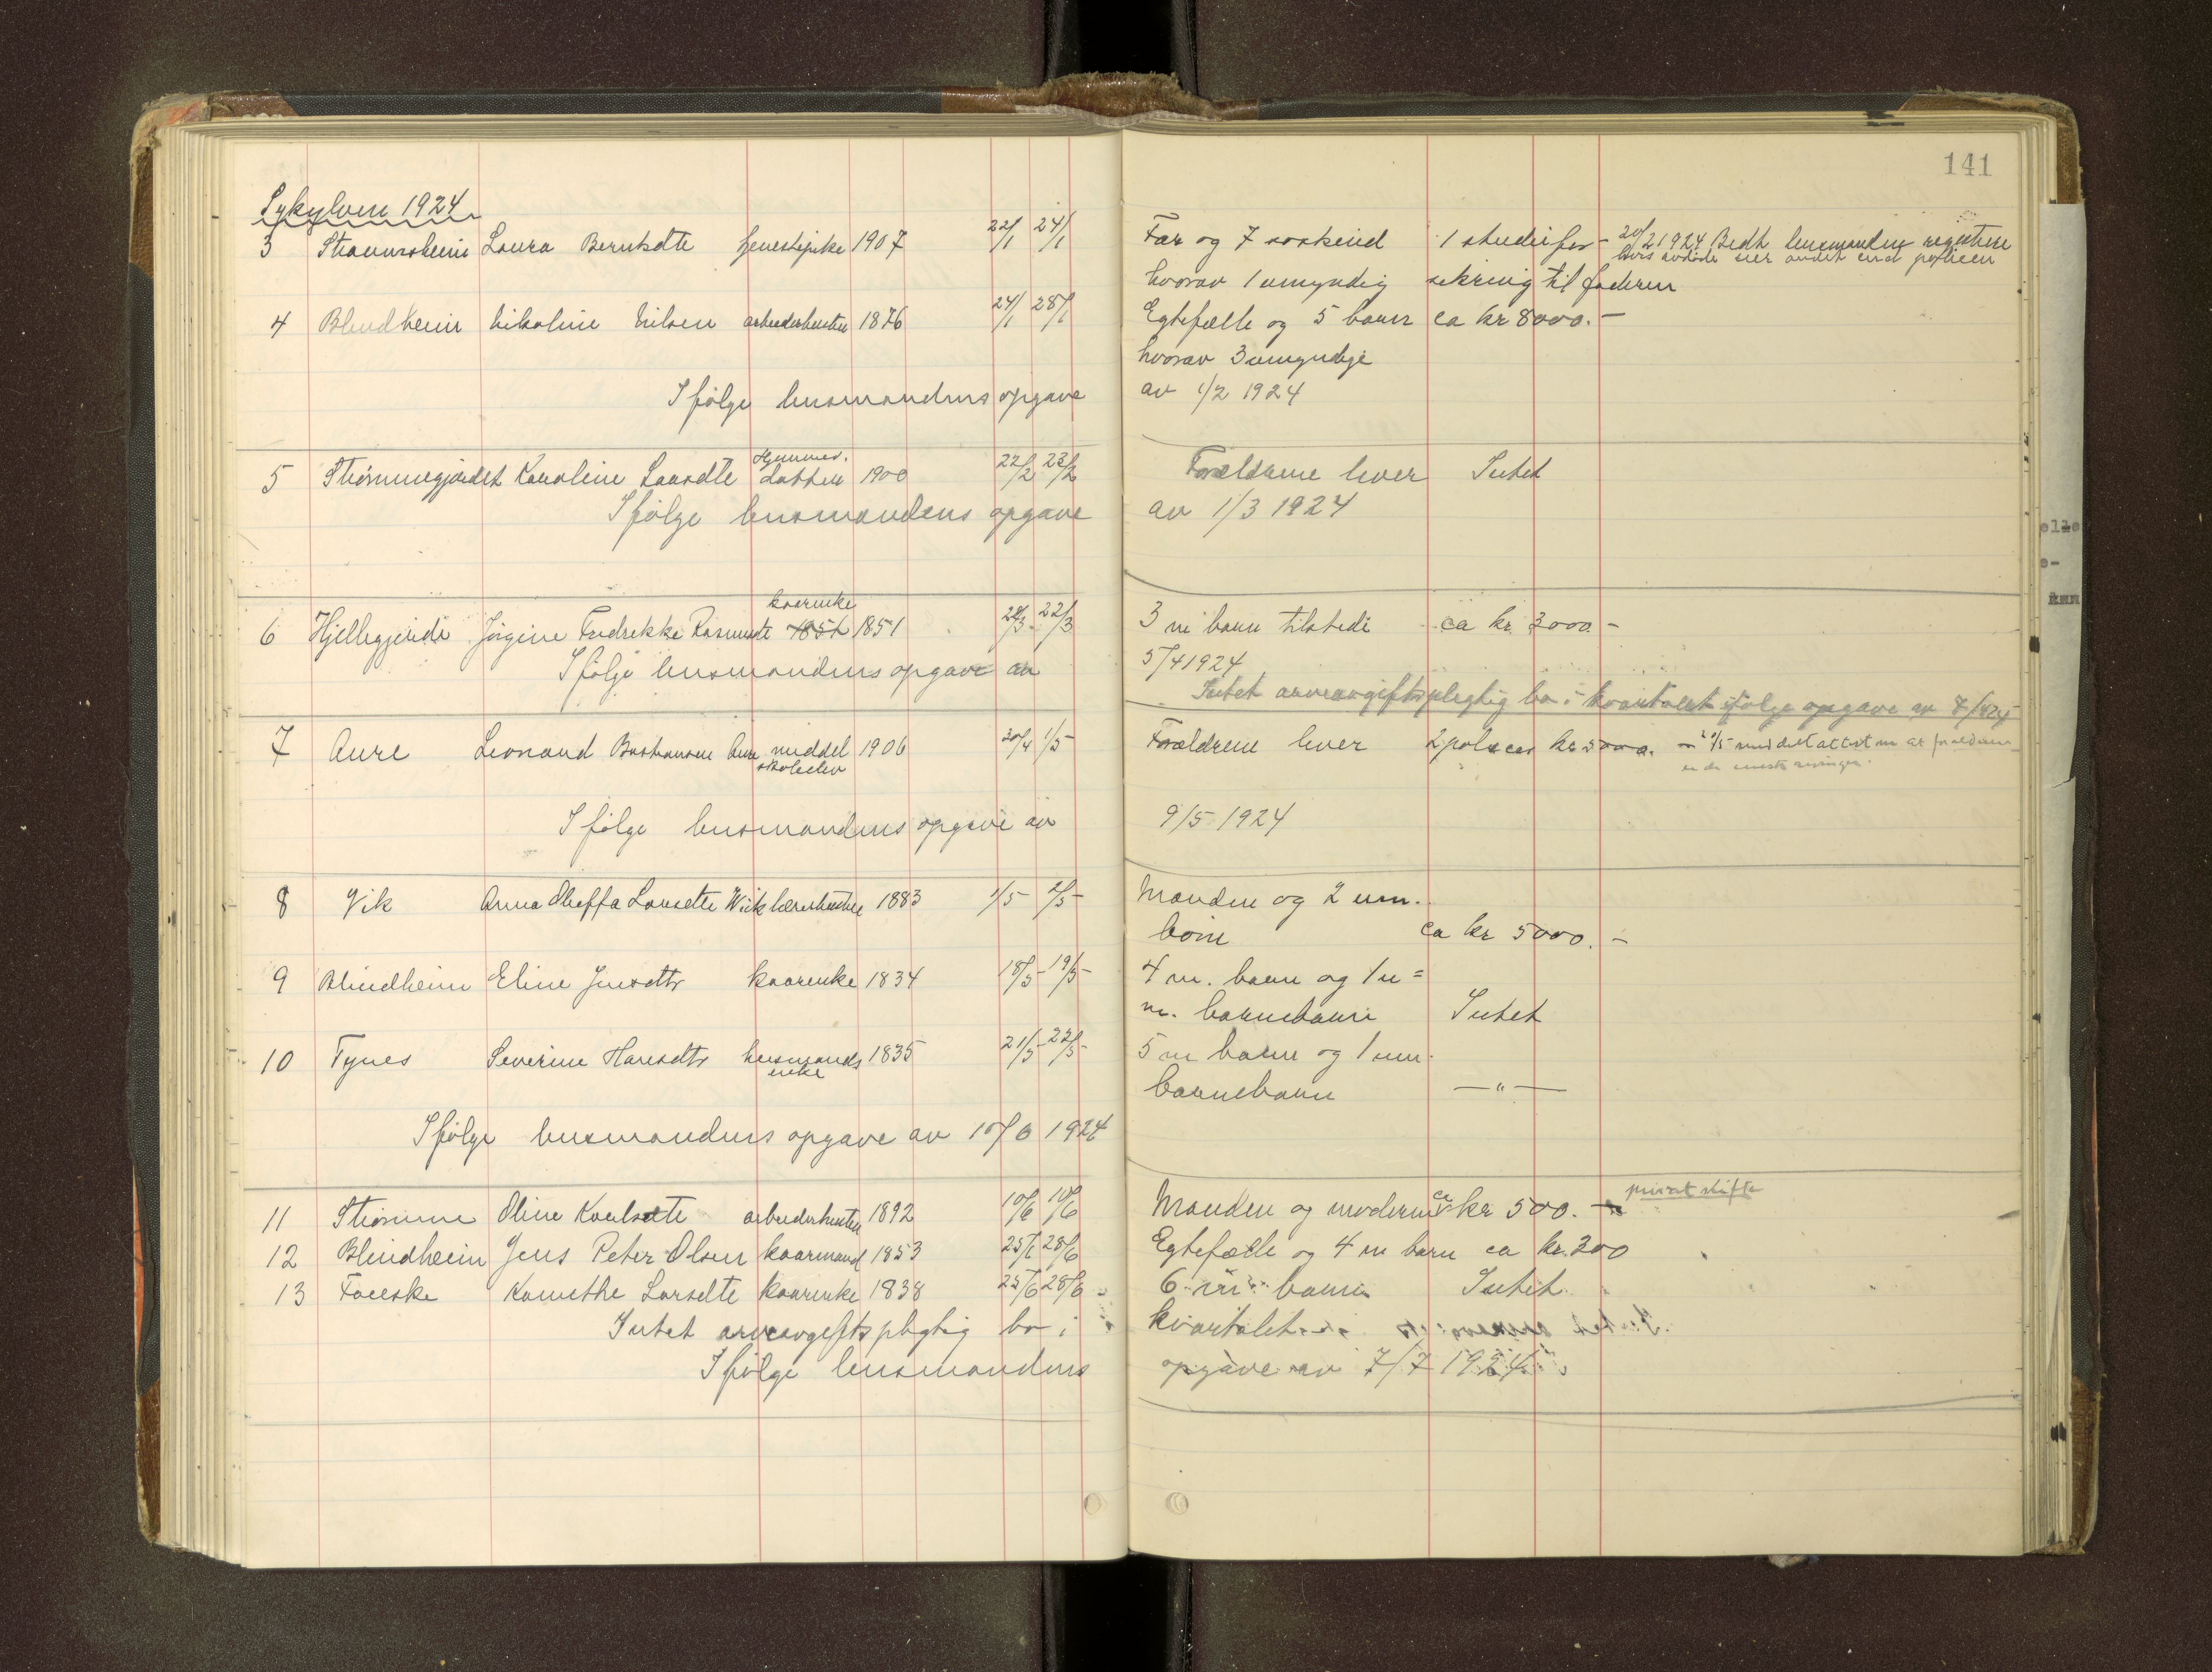 141
Sykylven 1924
3 Straumsheim Laura Berntsdtr tjenestepike 1907 22/1 24/1 Far og 7 søskend 1 studiefor- 20/2 1924 Bedt lensmanden registrere
hvis avdøde eier andet end policen
hvorav 1 umyndig sikring til faderen
4 Blindheim Nikoline Nilsen arbeiderhustru 1876 24/1 28/1 Egtefælle og 5 barn ca kr 8000.-
hvorav 3 umyndige
Ifølge lensmandens opgave av 1/2 1924
5 Strømmegjerdet Karoline Larsdtr Hjemmev. datter 1900 22/2 23/2 Forældrene lever Intet
Ifølge lensmandens opgave av 1/3 1924
6 Hjellegjerde Jørgine Fredrikke Rasmusdtr kaarenke 1851 22/3 3 m barn tilstede ca kr 3000.-
Ifølge lensmandens opgave av 5/4 1924
Intet arveavgiftspligtig bo i kvartalet ifølge opgave av
7 Aure Leonard Bastiansen Aure middelskoleelev 1906 20/4 1/5 Forældrene lever 2 policer kr 5000. meddelt attest om at forældrene
er de eneste arvinger.
Ifølge lensmandens opgave av 9/5 1924
8 Vik Anna Larsdtr Wiik lærerhustru 1883 1/5 2/5 Manden og 2 um.
børn ca kr 5000.-
9 Blindheim Eline Jensdtr kaarenke 1834 18/5 19/5 4 m. barn og 1 u=
m. barnebarn Intet
10 Tynes Severine Hansdtr husmandsenke 1835 21/5 22/5 5 m barn og 1 um.
barnebarn —"—
Ifølge lensmandens opgave av 10/6 1924
11 Strømme Oline Karlsdtr arbeiderhustru 1892 10/6 10/6 Manden og moderen ca kr 500.- privat skifte
12 Blindheim Jens Peter Olsen kaarmand 1853 25/6 28/6 Egtefælle og 4 m barn ca kr. 200
13 Fauske Karethe Larsdtr kaarenke 1838 25/6 28/6 6 m barn Intet
Intet arveavgiftspligtig bo i kvartalet
Ifølge lensmandens opgave av 7/7 1924
elle
e-